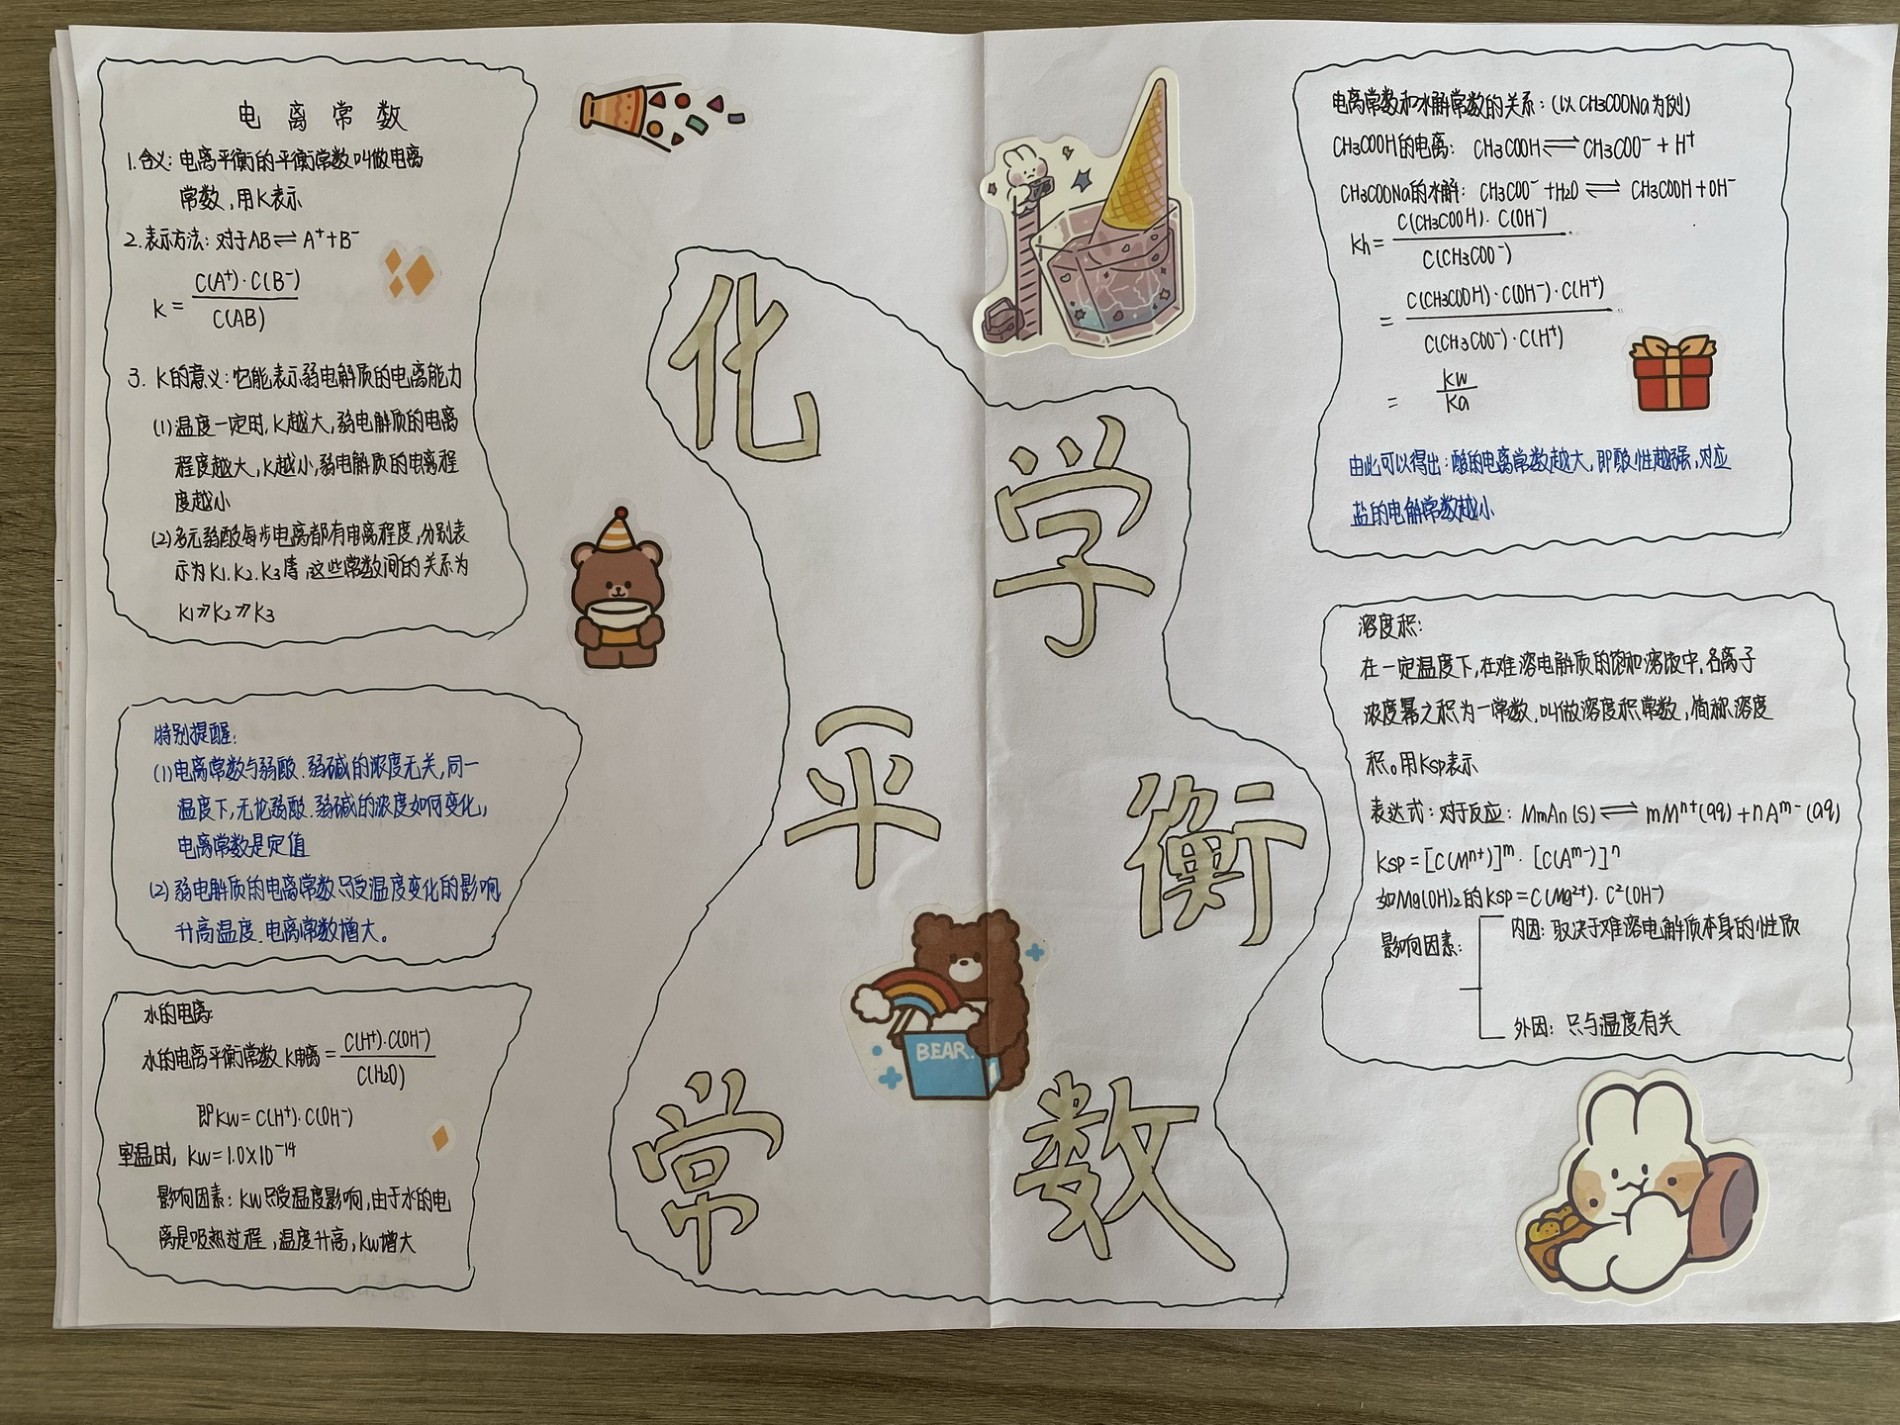 电离常数
1.含义：电离平衡的平衡常数叫做电离
常数，用K表示
2.表示方法：对于AB⇌A⁺+B⁻
K= C(A⁺)·C(B⁻)
C(AB)
3. K的意义：它能表示弱电解质的电离能力
(1)温度一定时，K越大，弱电解质的电离
程度越大，K越小，弱电解质的电离程
度越小
(2)多元弱酸每步电离都有电离程度，分别表
示为K₁.K₂.K₃等，这些常数间的关系为
K₁≫K₂≫K₃
特别提醒：
(1)电离常数与弱酸、弱碱的浓度无关，同一
温度下，无论弱酸、弱碱的浓度如何变化，
电离常数是定值
(2)弱电解质的电离常数只受温度变化的影响
升高温度、电离常数增大。
水的电离：
水的电离平衡常数K电离= C(H⁺)·C(OH⁻)
C(H₂O)
即Kw=C(H⁺)·C(OH⁻)
室温时，Kw=1.0×10⁻¹⁴
影响因素：Kw只受温度影响，由于水的电
离是吸热过程，温度升高，Kw增大
化
学
平
衡
BEAR.
常
数
电离常数和水解常数的关系：(以CH₃COONa为例)
CH₃COOH的电离：CH₃COOH⇌CH₃COO⁻+H⁺
CH₃COONa的水解：CH₃COO⁻+H₂O⇌CH₃COOH+OH⁻
Kh= C(CH₃COOH)·C(OH⁻)
C(CH₃COO⁻)
= C(CH₃COOH)·C(OH⁻)·C(H⁺)
C(CH₃COO⁻)·C(H⁺)
= Kw
Ka
由此可以得出：酸的电离常数越大，即酸性越强，对应
盐的电解常数越小
溶度积：
在一定温度下，在难溶电解质的饱和溶液中，各离子
浓度幂之积为一常数，叫做溶度积常数，简称溶度
积。用Ksp表示
表达式：对于反应：MmAn(s)⇌mMⁿ⁺(aq)+nAᵐ⁻(aq)
Ksp=[C(Mⁿ⁺)]ᵐ·[C(Aᵐ⁻)]ⁿ
如Mg(OH)₂的Ksp=C(Mg²⁺)·C²(OH⁻)
影响因素：
内因：取决于难溶电解质本身的性质
外因：只与温度有关